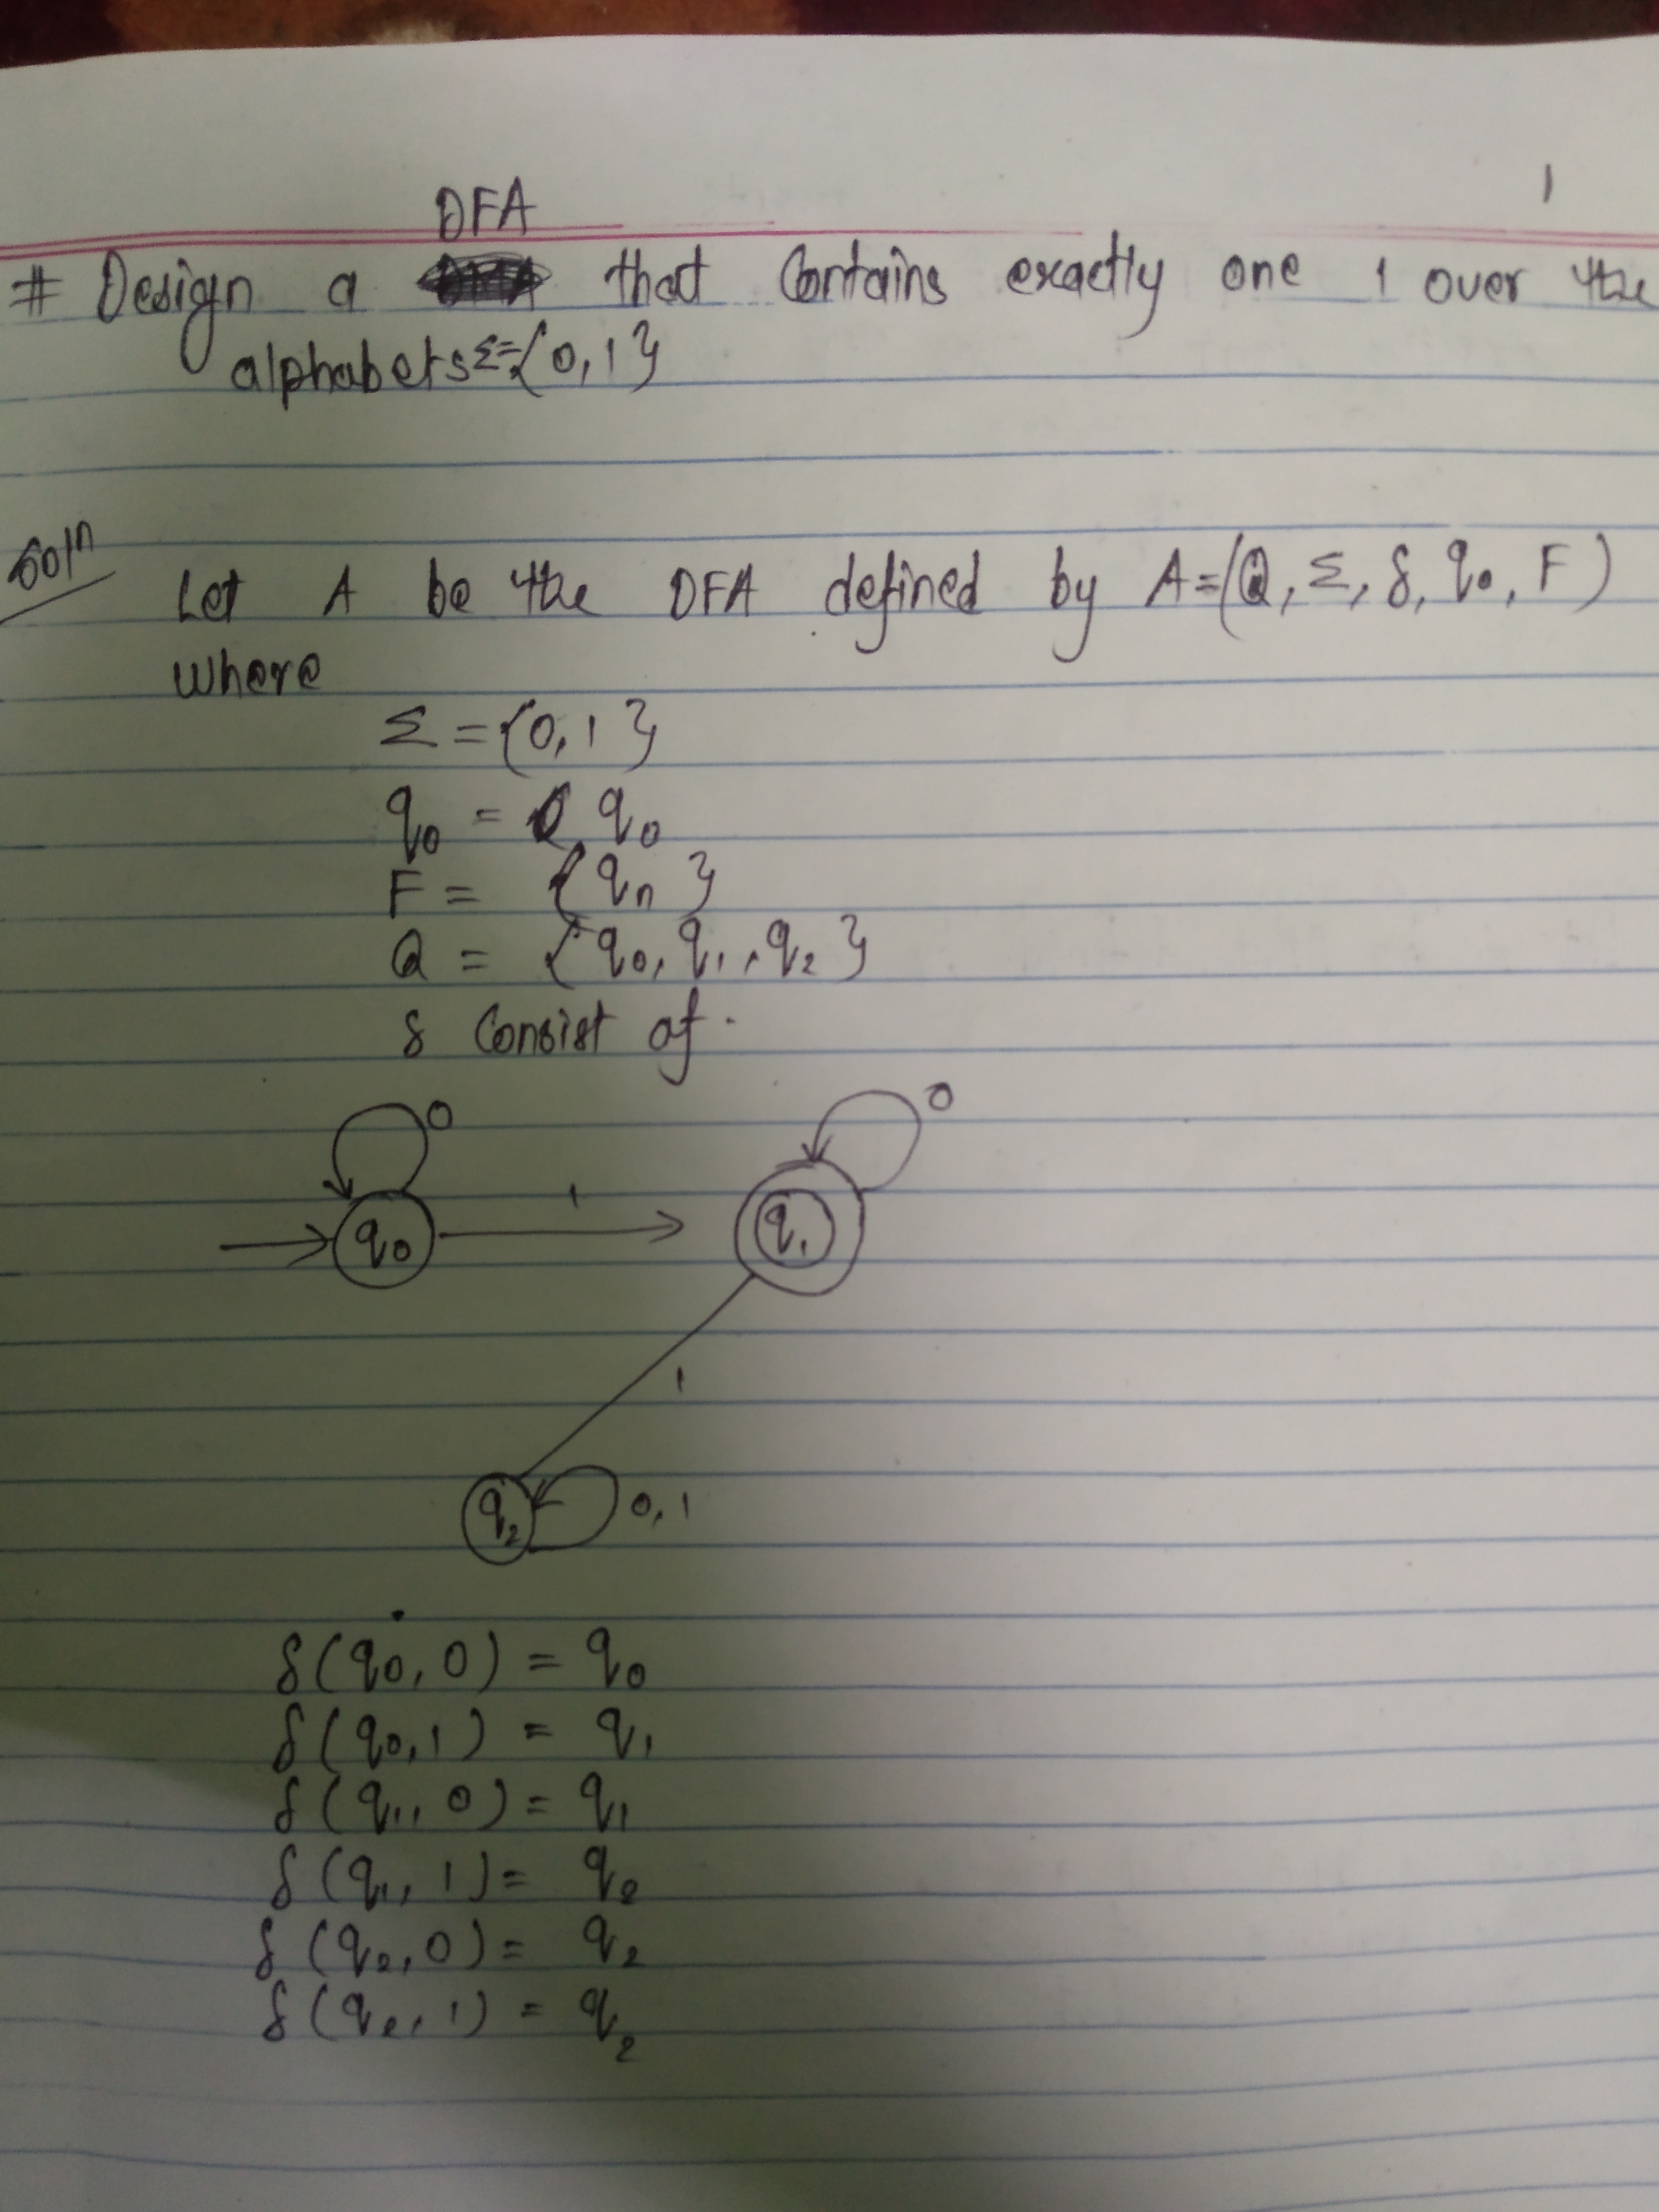 1
DFA
# Design a that contains exactly one 1 over the
alphabets Σ={0,1}
Soln
Let A be the DFA defined by A=(Q, Σ, δ, q0, F)
where
Σ = {0,1}
q0 = q0
F = {qn}
Q = {q0, q1, q2}
δ consist of.
0
0
q0
1
q1
1
q2
0,1
δ(q0,0) = q0
δ(q0,1) = q1
δ(q1,0) = q1
δ(q1,1) = q2
δ(q2,0) = q2
δ(q2,1) = q2